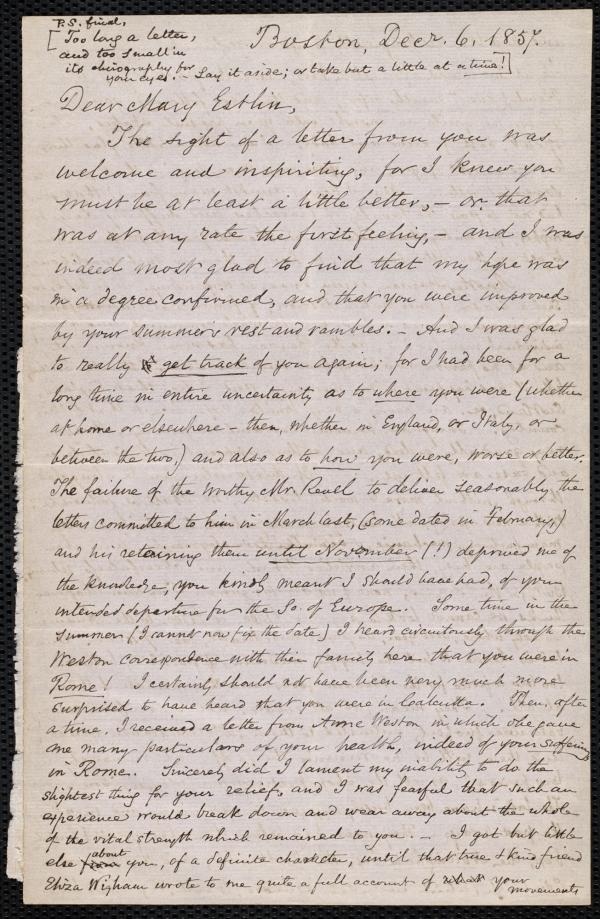 P.S. final,
[Too long a letter,
and too small in
its chirography for
your eyes. – Lay it aside; or take but a little at a time!]
Boston, Decr. 6. 1857.
Dear Mary Estlin,
The sight of a letter from you was
welcome and inspiriting, for I knew you
must be at least a little better, – or that
was at any rate the first feeling, – and I was
indeed most glad to find that my hope was
in a degree confirmed, and that you were improved
by your summer's rest and rambles. – And I was glad
to really get track of you again; for I had been for a
long time in entire uncertainty as to where you were (whether
at home or elsewhere – then, whether in England, or Italy, or
between the two,) and also as to how you were, worse or better.
The failure of the worthy Mr. Revel to deliver seasonably the
letters committed to him in March last, (some dated in February,)
and his retaining them until November (!) deprived me of
the knowledge, you kindly meant I should have had, of your
intended departure for the So. of Europe. Some time in the
summer (I cannot now fix the date) I heard circuitously through the
Weston correspondence with their family here that you were in
Rome! I certainly should not have been very much more
surprised to have heard that you were in Calcutta. Then, after
a time, I received a letter from Anne Weston in which she gave
me many particulars of your health, indeed of your suffering
in Rome. Sincerely did I lament my inability to do the
slightest thing for your relief, and I was fearful that such an
experience would break down and wear away about the whole
of the vital strength which remained to you. – I got but little
else from about you, of a definite character, until that true & kind friend
Eliza Wigham wrote to me quite a full account of what your
movements